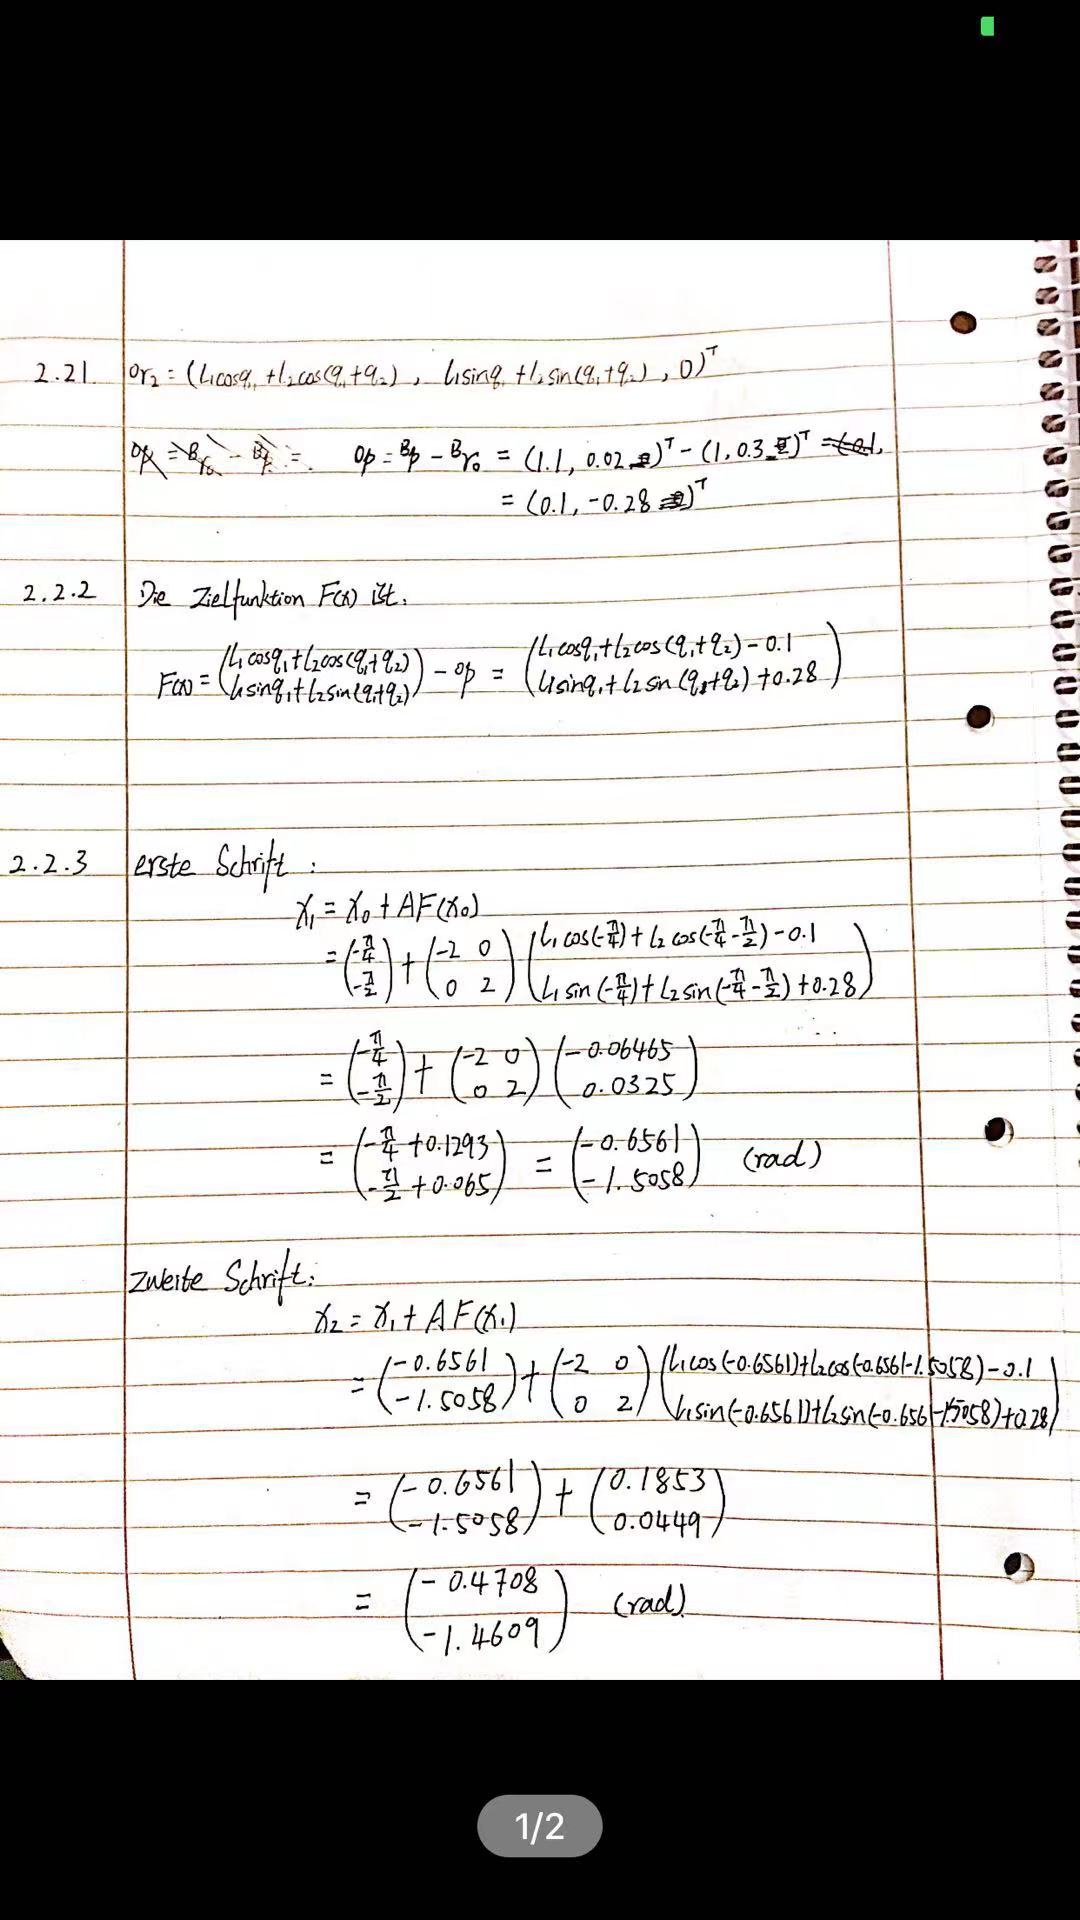 2.21. ₀r₂ = (l₁cosq₁ + l₂cos(q₁+q₂), l₁sinq₁ + l₂sin(q₁+q₂), 0)ᵀ
₀p = ᴮp - ᴮr₀ = (1.1, 0.02)ᵀ - (1, 0.3)ᵀ
= (0.1, -0.28)ᵀ
2.2.2 Die Zielfunktion F(x) ist.
F(x) = (l₁cosq₁+l₂cos(q₁+q₂) ; l₁sinq₁+l₂sin(q₁+q₂)) - ₀p = (l₁cosq₁+l₂cos(q₁+q₂)-0.1 ; l₁sinq₁+l₂sin(q₁+q₂)+0.28)
2.2.3 erste Schrift :
x₁ = x₀ + AF(x₀)
= (-π/4 ; -π/2) + (-2 0 ; 0 2) (l₁cos(-π/4)+l₂cos(-π/4-π/2)-0.1 ; l₁sin(-π/4)+l₂sin(-π/4-π/2)+0.28)
= (-π/4 ; -π/2) + (-2 0 ; 0 2) (-0.06465 ; 0.0325)
= (-π/4+0.1293 ; -π/2+0.065) = (-0.6561 ; -1.5058) (rad)
zweite Schrift:
x₂ = x₁ + AF(x₁)
= (-0.6561 ; -1.5058) + (-2 0 ; 0 2) (l₁cos(-0.6561)+l₂cos(-0.6561-1.5058)-0.1 ; l₁sin(-0.6561)+l₂sin(-0.656-1.5058)+0.28)
= (-0.6561 ; -1.5058) + (0.1853 ; 0.0449)
= (-0.4708 ; -1.4609) (rad)
1/2